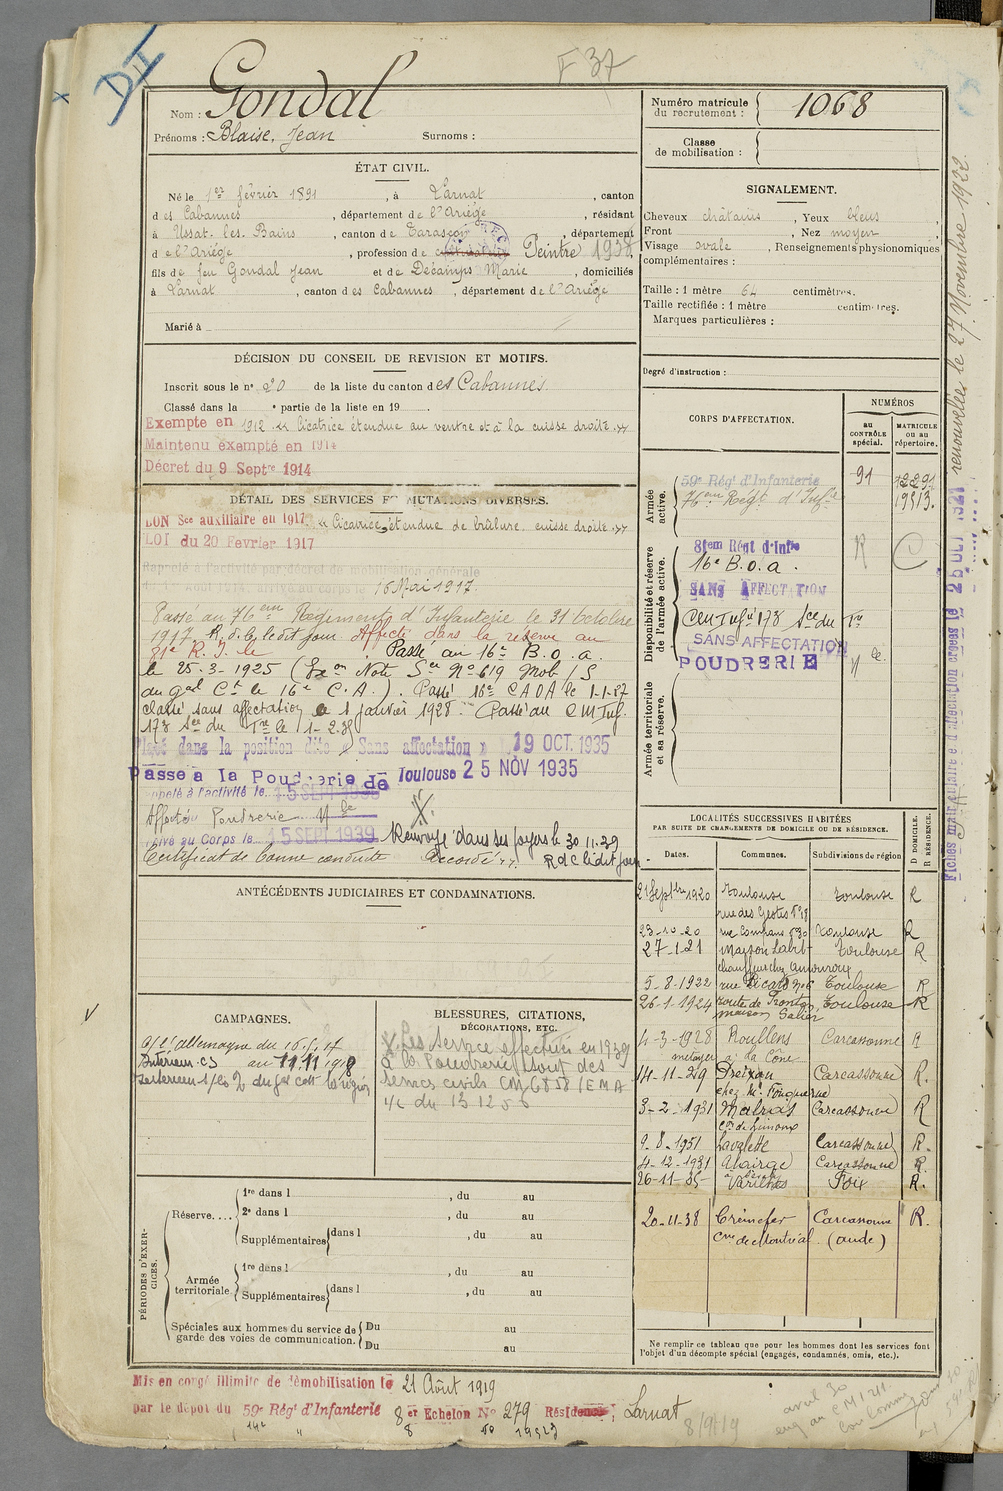 DII
F 37
Nom : Gondal
Prénoms : Blaise, Jean Surnoms :
ÉTAT CIVIL.
Né le 1er février 1891, à Larnat, canton
des Cabannes, département de l'Ariège, résidant
à Ussat-les-Bains, canton de Tarascon, département
de l'Ariège, profession de Peintre 1938
fils de feu Gondal Jean et de Décamps Marie, domiciliés
à Larnat, canton des Cabannes, département de l'Ariège
Marié à
DÉCISION DU CONSEIL DE REVISION ET MOTIFS.
Inscrit sous le n° 20 de la liste du canton des Cabannes
Classé dans la e partie de la liste en 19
Exempté en 1912 « Cicatrice étendue au ventre et à la cuisse droite »
Maintenu exempté en 1914
Décret du 9 Septre 1914
DÉTAIL DES SERVICES ET MUTATIONS DIVERSES.
BON Sce auxiliaire en 1917 « Cicatrice étendue de brûlure cuisse droite »
LOI du 20 Février 1917
Rappelé à l'activité par décret de mobilisation générale
arrivé au corps le 16 Mai 1917.
Passé au 76em Régiment d'Infanterie le 31 Octobre
1917 R.d.c. le dit jour Affecté dans la réserve au
81e R. I. le Passé au 16e B.O.a.
le 25-3-1925 (Exon Note Sce N° 619 Mob/S
du gal Ct le 16e C.A.). Passé 16e C A O A le 1-1-27
classé sans affectation le 1 janvier 1928. Passé au C M Inf.
178 Sce du Tre le 1-2-38
Placé dans la position dite « Sans affectation » 19 OCT. 1935
Passé à la Poudrerie de Toulouse 25 NOV 1935
Rappelé à l'activité le 15 SEPT 1939
Affecté Poudrerie Nle
Arrivé au Corps le 15 SEPT 1939 Renvoyé dans ses foyers le 30.11.39
Certificat de bonne conduite Accordé RdC ledit jour
ANTÉCÉDENTS JUDICIAIRES ET CONDAMNATIONS.
CAMPAGNES.
c/ l'allemagne du 16.5.17
Intérieur CS au 11.11 1918
BLESSURES, CITATIONS,
DÉCORATIONS, ETC.
Les Service effectués en 1939
à la Poudrerie sont des
services civils CM 6858/EMA
PÉRIODES D'EXERCICES.
Réserve....
1re dans l , du au
2e dans l , du au
Supplémentaires dans l , du au
Armée territoriale
1re dans l , du au
Supplémentaires dans l , du au
Spéciales aux hommes du service de garde des voies de communication.
Du au
Du au
Mis en congé illimité de démobilisation le 21 Août 1919
par le dépôt du 59e Régt d'Infanterie 8er Echelon N° 279 Résidence, Larnat
Numéro matricule
du recrutement : 1068
Classe
de mobilisation :
SIGNALEMENT.
Cheveux châtains, Yeux bleus
Front , Nez moyen
Visage ovale, Renseignements physionomiques
complémentaires :
Taille : 1 mètre 64 centimètres.
Taille rectifiée : 1 mètre centimètres.
Marques particulières :
Degré d'instruction :
CORPS D'AFFECTATION.
NUMÉROS
au CONTRÔLE spécial.
MATRICULE ou au répertoire.
Armée active.
59e Régt d'Infanterie 91 12291
76em Regt d'Infie 19513.
Disponibilité et réserve de l'armée active.
81em Régt d'Infie R C
16e B.O.a.
SANS AFFECTATION
CM Infie 178 Sce du Tre
SANS AFFECTATION
POUDRERIE Nle
Armée territoriale et sa réserve.
LOCALITÉS SUCCESSIVES HABITÉES
PAR SUITE DE CHANGEMENTS DE DOMICILE OU DE RÉSIDENCE.
Dates. Communes. Subdivisions de région D DOMICILE. R RÉSIDENCE.
21 Septbre 1920 Toulouse Toulouse R
rue des Gestes N° 18
23-10-20 rue Compans N° 30 Toulouse R
27-1-21 Maison Labit Toulouse R
chauffeur chez Amouroux
5-8-1922 rue Ricard N° 6 Toulouse R
26-1-1924 route de Fronton Toulouse R
maison Salier
4-3-1928 Roullens Carcassonne R
métayer à la Cône
14-11-29 Preixan Carcassonne R.
3-2-1931 Malras Carcassonne R
Con de Limoux
9-8-1931 Lavalette Carcassonne R.
4-12-1931 Alairac Carcassonne R.
26-11-35 Varilhes Foix R.
20-11-38 Carcassonne R.
Cne de Montréal (aude)
Ne remplir ce tableau que pour les hommes dont les services font
l'objet d'un décompte spécial (engagés, condamnés, omis, etc.).
8/9/19
Fiches matriculaire et d'affectation créées le 25 OCT 1921 renouvellées le 27 Novembre 1922